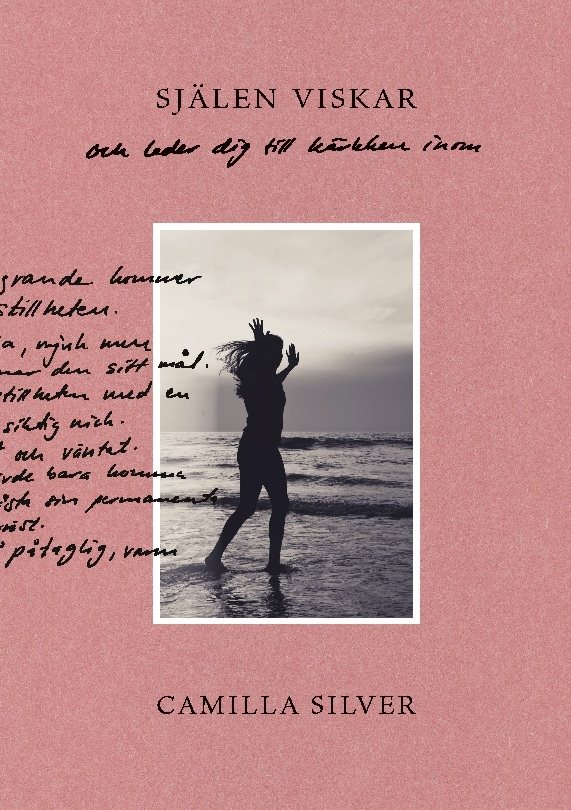 SJÄLEN VISKAR
och leder dig till kärleken inom
grande kommer
stillheten.
a, mjuk men
ner den sitt mål.
stillheten med en
siktig nick.
och väntat.
bara komma
sin permanenta
påtaglig, varm
CAMILLA SILVER